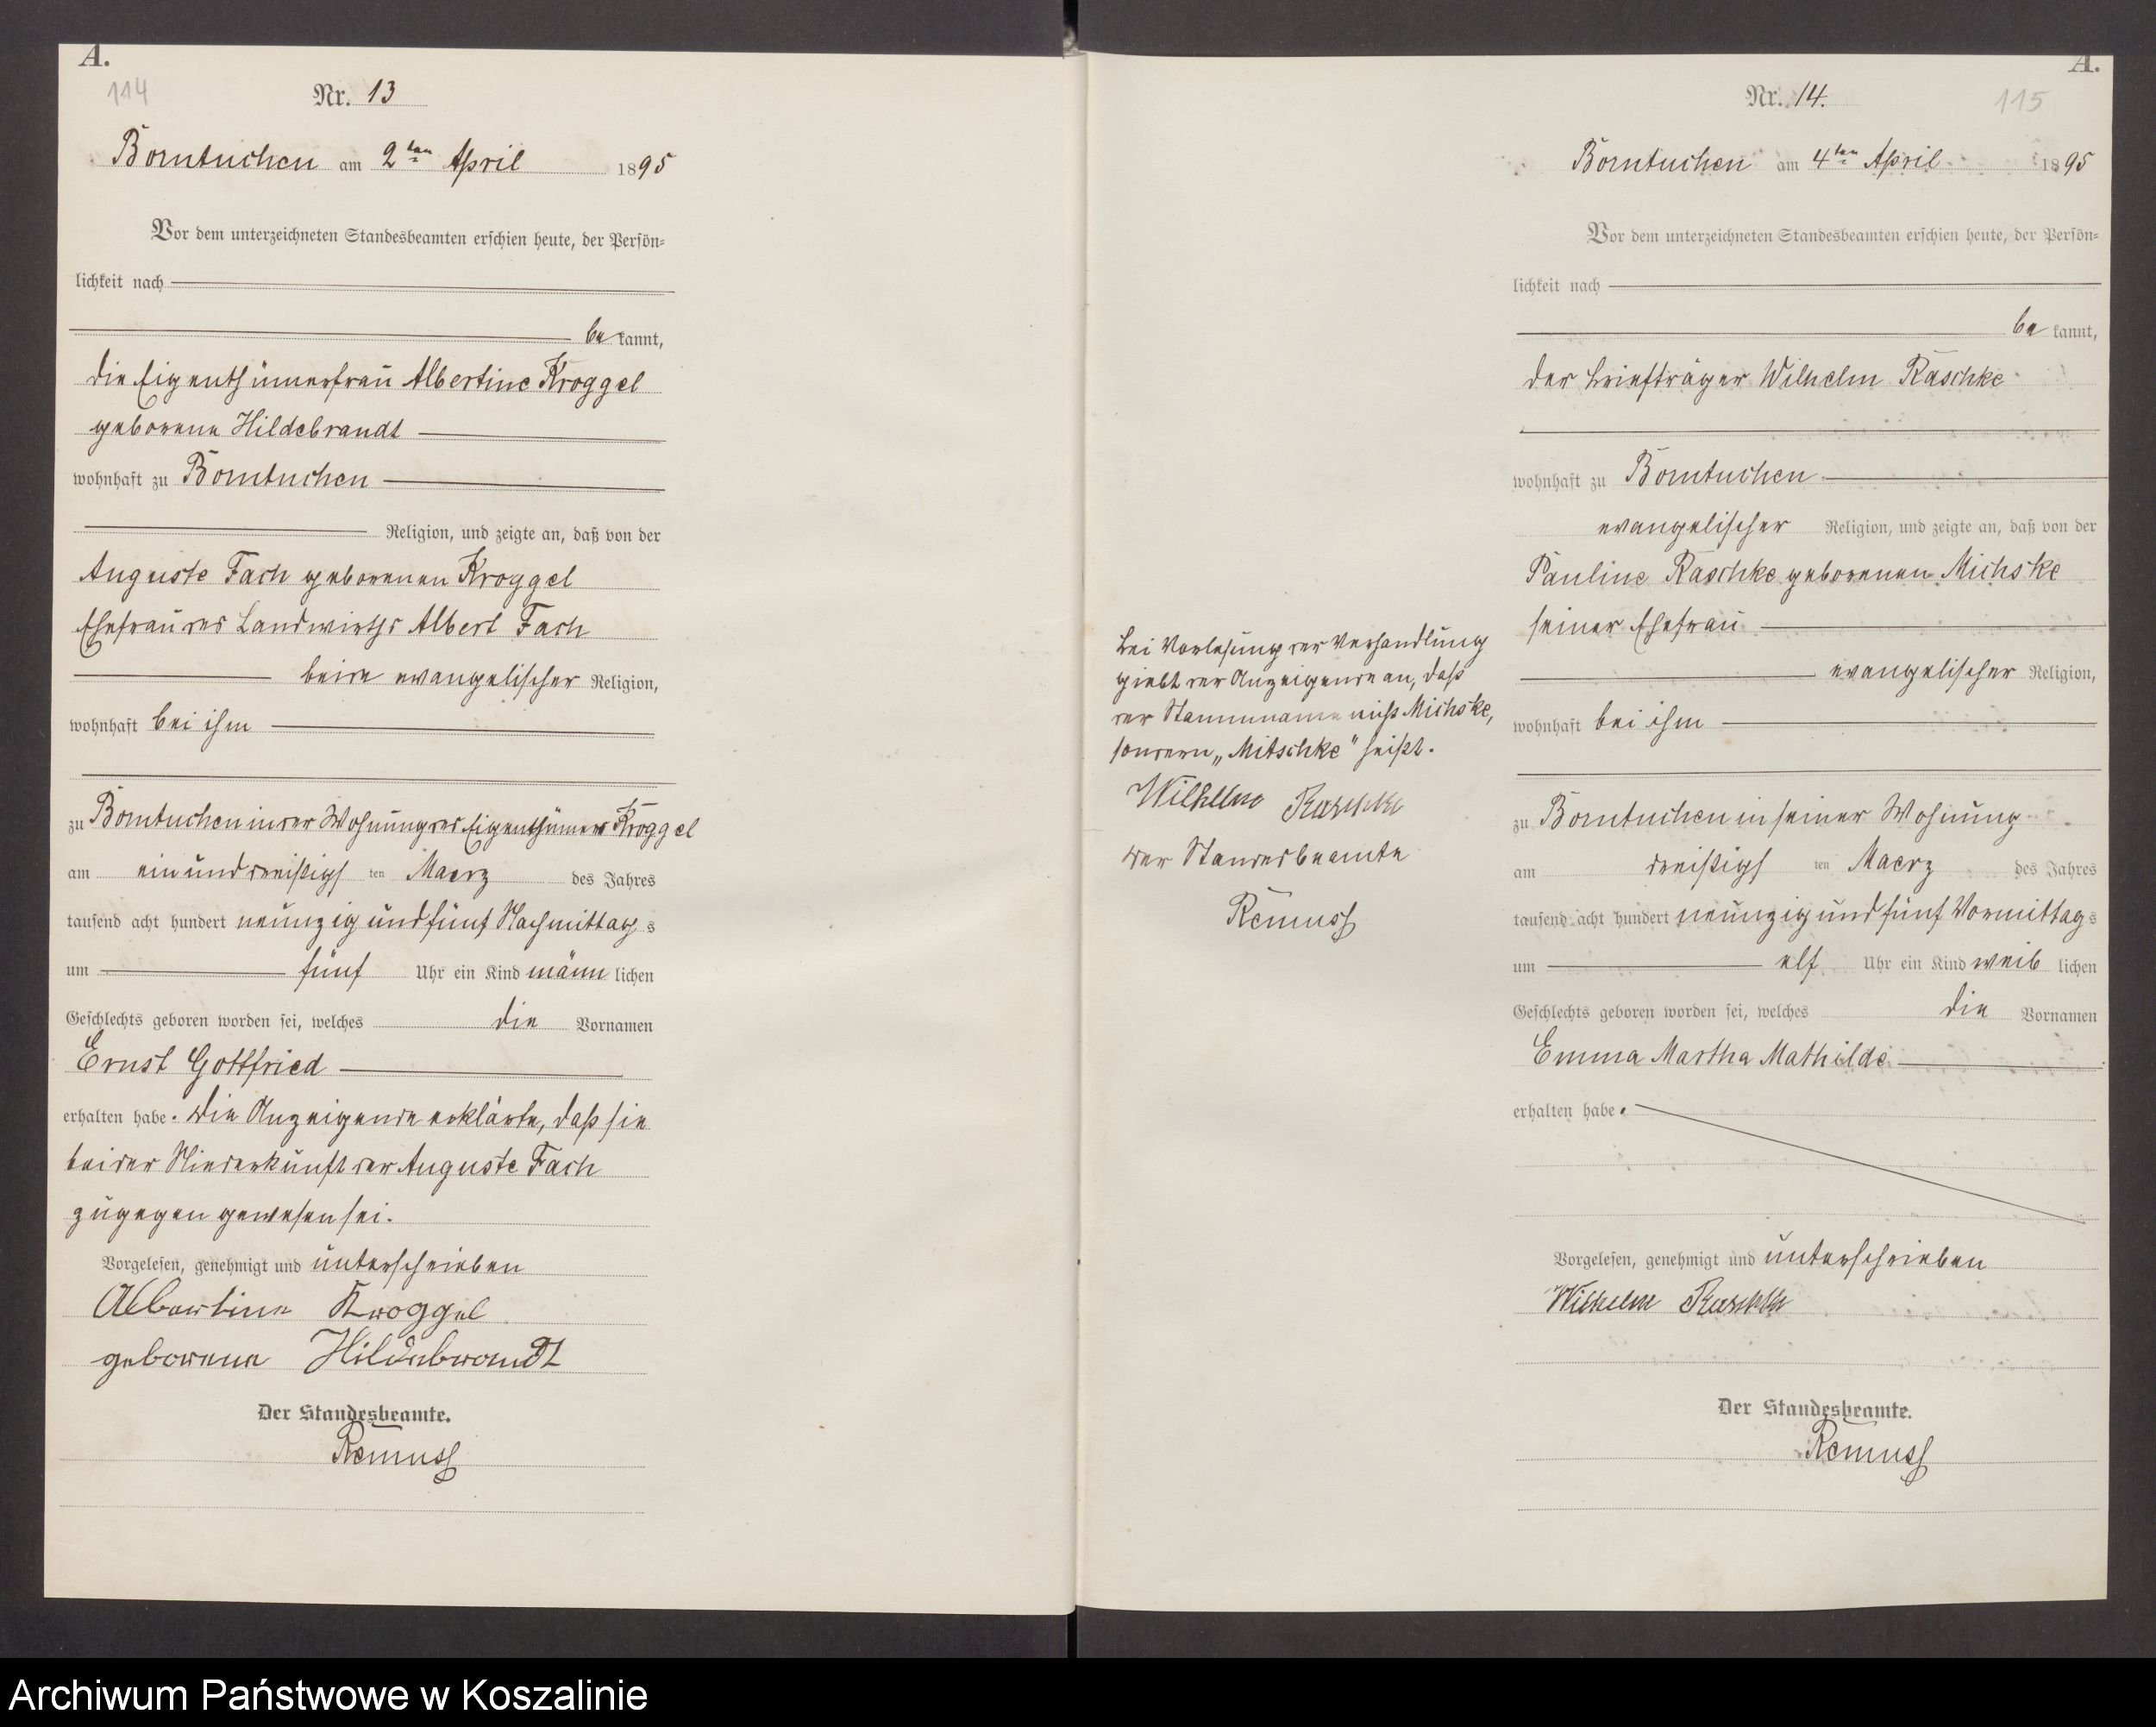 A.
114
Nr. 13
Borntuchen am 2ten April 1895
Vor dem unterzeichneten Standesbeamten erschien heute, der Persön-
lichkeit nach
be kannt,
die Eigenthümerfrau Albertine Kroggel
geborene Hildebrandt
wohnhaft zu Borntuchen
Religion, und zeigte an, daß von der
Auguste Fach geborenen Kroggel
Ehefrau des Landwirths Albert Fach
beide evangelischer Religion,
wohnhaft bei ihm
zu Borntuchen in der Wohnung des Eigenthümers Kroggel
am ein und dreißigs ten Maerz des Jahres
tausend acht hundert neunzig und fünf Nachmittags
um fünf Uhr ein Kind männ lichen
Geschlechts geboren worden sei, welches die Vornamen
Ernst Gottfried
erhalten habe. Die Anzeigende erklärte, daß sie
bei der Niederkunft der Auguste Fach
zugegen gewesen sei.
Vorgelesen, genehmigt und unterschrieben
Albertine Kroggel
geborene Hildebrandt
Der Standesbeamte.
Remuss
Bei Vorlesung der Verhandlung
giebt der Anzeigende an, daß
der Stammname nicht Michske,
sondern „Mitschke" heißt.
Wilhelm Raschke
Der Standesbeamte
Remuss
A.
115
Nr. 14.
Borntuchen am 4ten April 1895
Vor dem unterzeichneten Standesbeamten erschien heute, der Persön-
lichkeit nach
be kannt,
der Briefträger Wilhelm Raschke
wohnhaft zu Borntuchen
evangelischer Religion, und zeigte an, daß von der
Pauline Raschke geborenen Michske
seiner Ehefrau
evangelischer Religion,
wohnhaft bei ihm
zu Borntuchen in seiner Wohnung
am dreißigs ten Maerz des Jahres
tausend acht hundert neunzig und fünf Vormittags
um elf Uhr ein Kind weib lichen
Geschlechts geboren worden sei, welches die Vornamen
Emma Martha Mathilde
erhalten habe.
Vorgelesen, genehmigt und unterschrieben
Wilhelm Raschke
Der Standesbeamte.
Remuss
Archiwum Państwowe w Koszalinie